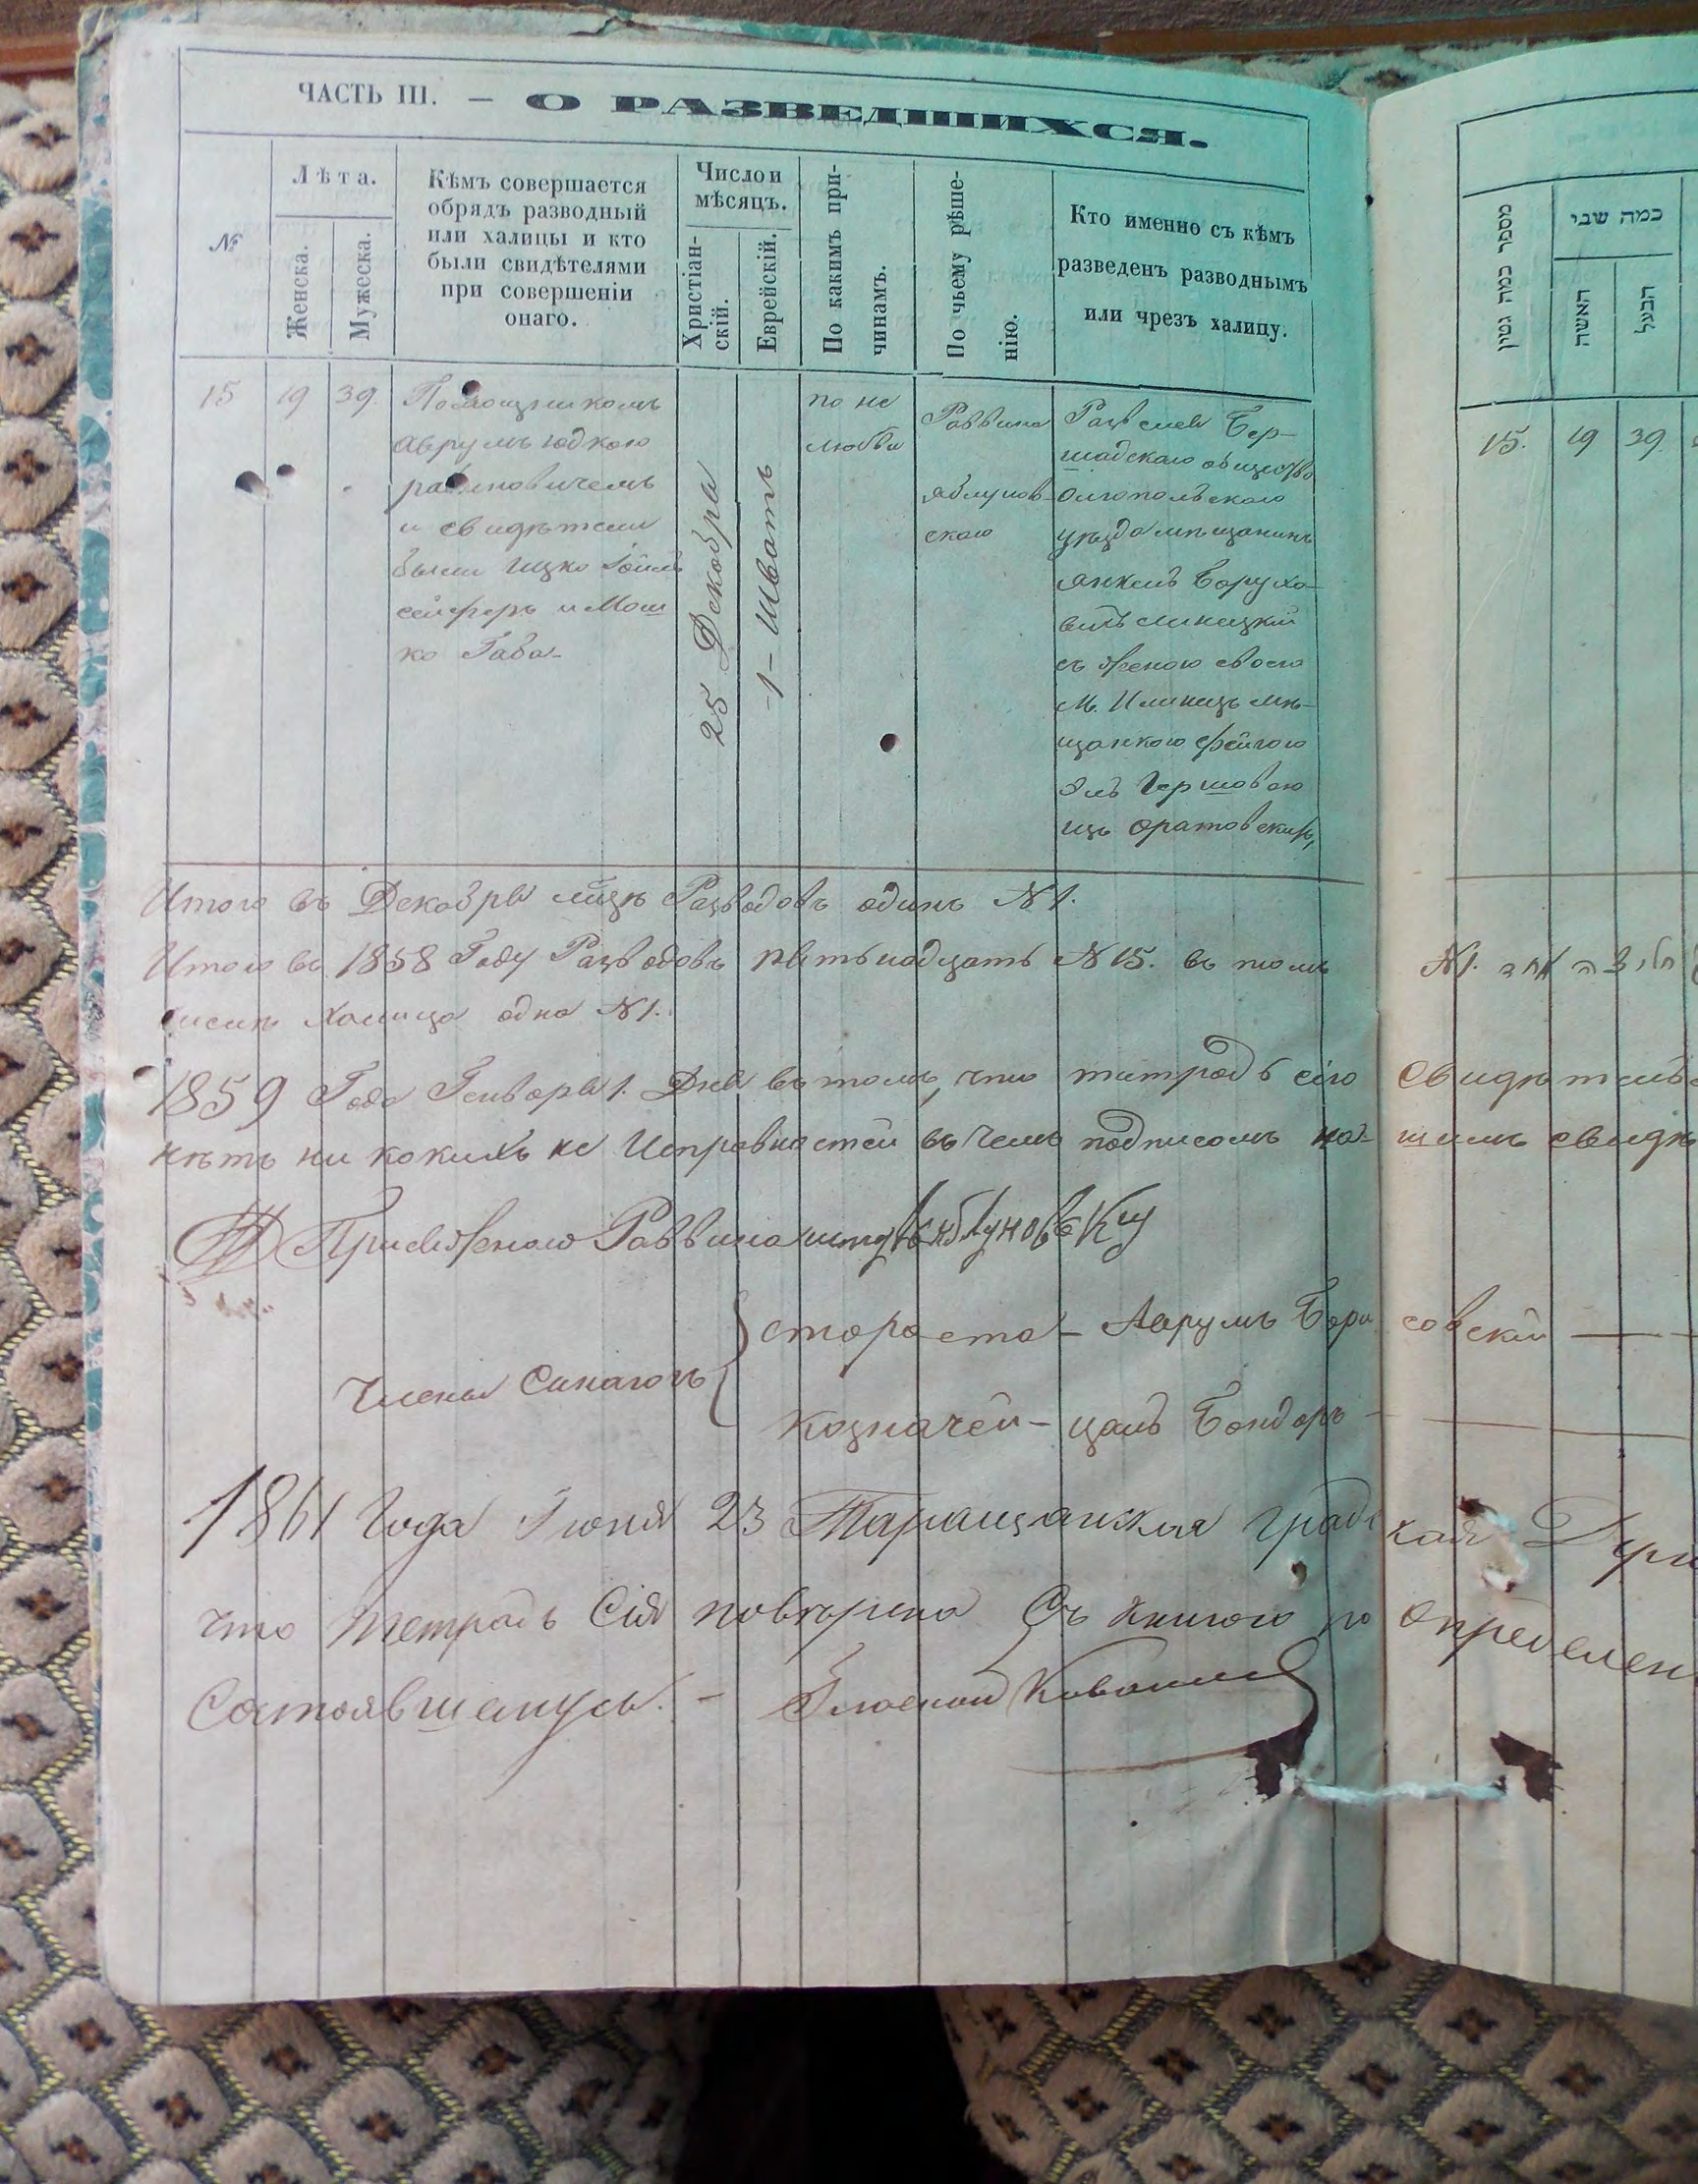 ЧАСТЬ III. — О РАЗВЕДШИХСЯ.
№
Лѣта.
Женска.
Мужеска.
Кѣмъ совершается
обрядъ разводный
или халицы и кто
были свидѣтелями
при совершеніи
онаго.
Число и
мѣсяцъ.
Христіан-
скій.
Еврейскій.
По какимъ при-
чинамъ.
По чьему рѣше-
нію.
Кто именно съ кѣмъ
разведенъ разводнымъ
или чрезъ халицу.
15
19
39.
Помощникомъ
Аврумъ Юдкою
рабиновичемъ
и свидѣтели
были Ицко
и Мош
ко
25 Декабря
1 - Шватъ
по не
любви
Раввина
яблунов-
скаго
Бер-
шадскаго общества
Олгопольскаго
уѣзда мѣщанинъ
Янкель Борухо-
вичъ Линецкій
съ женою своею
М. Илинецъ мѣ-
щанкою Фейгою
Гершовою
изъ Оратовскихъ,
Итого въ Декабрѣ м̃цѣ Разводовъ одинъ N 1.
Итого въ 1858 Году Разводовъ пятьнадцать N 15. въ томъ
числѣ Халица одна N 1.
1859 Года Генваря 1. Дня въ томъ, что тетрадь сіго
нѣтъ ни какихъ не Исправностей въ чемъ подписомъ на-
Присяжного Раввина Яблуновску
Члены Синагогъ
староста - Аврумъ Бори
казначей - Бондарь
1861 Года Іюня 23 Таращанская Градс
что Тетрадь Сія повѣрена Съ книгою по
Состоявшемусь. - Гласный
מספר כמה גטין
כמה שני
האשה
הבעל
15.
19
39.
N 1.
свидѣтель
шимъ свидѣ
совскій
кая Дум
определен